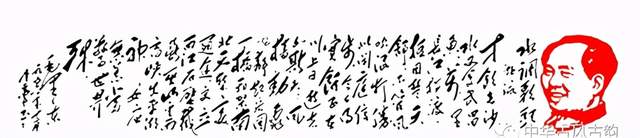 水调歌头
游泳
才饮长沙
水又食武昌
鱼万里
长江横渡
极目楚天
舒不管风
吹浪打胜似
闲庭信
步今日得
宽余子在川
上曰逝者
如斯夫风
樯动龟蛇
静起宏图
一桥飞架南
北天堑变
通途更立
西江石壁截
断巫山云雨
高峡出平湖
神女应
无恙当
惊世界
殊
毛泽东
中华古风古韵